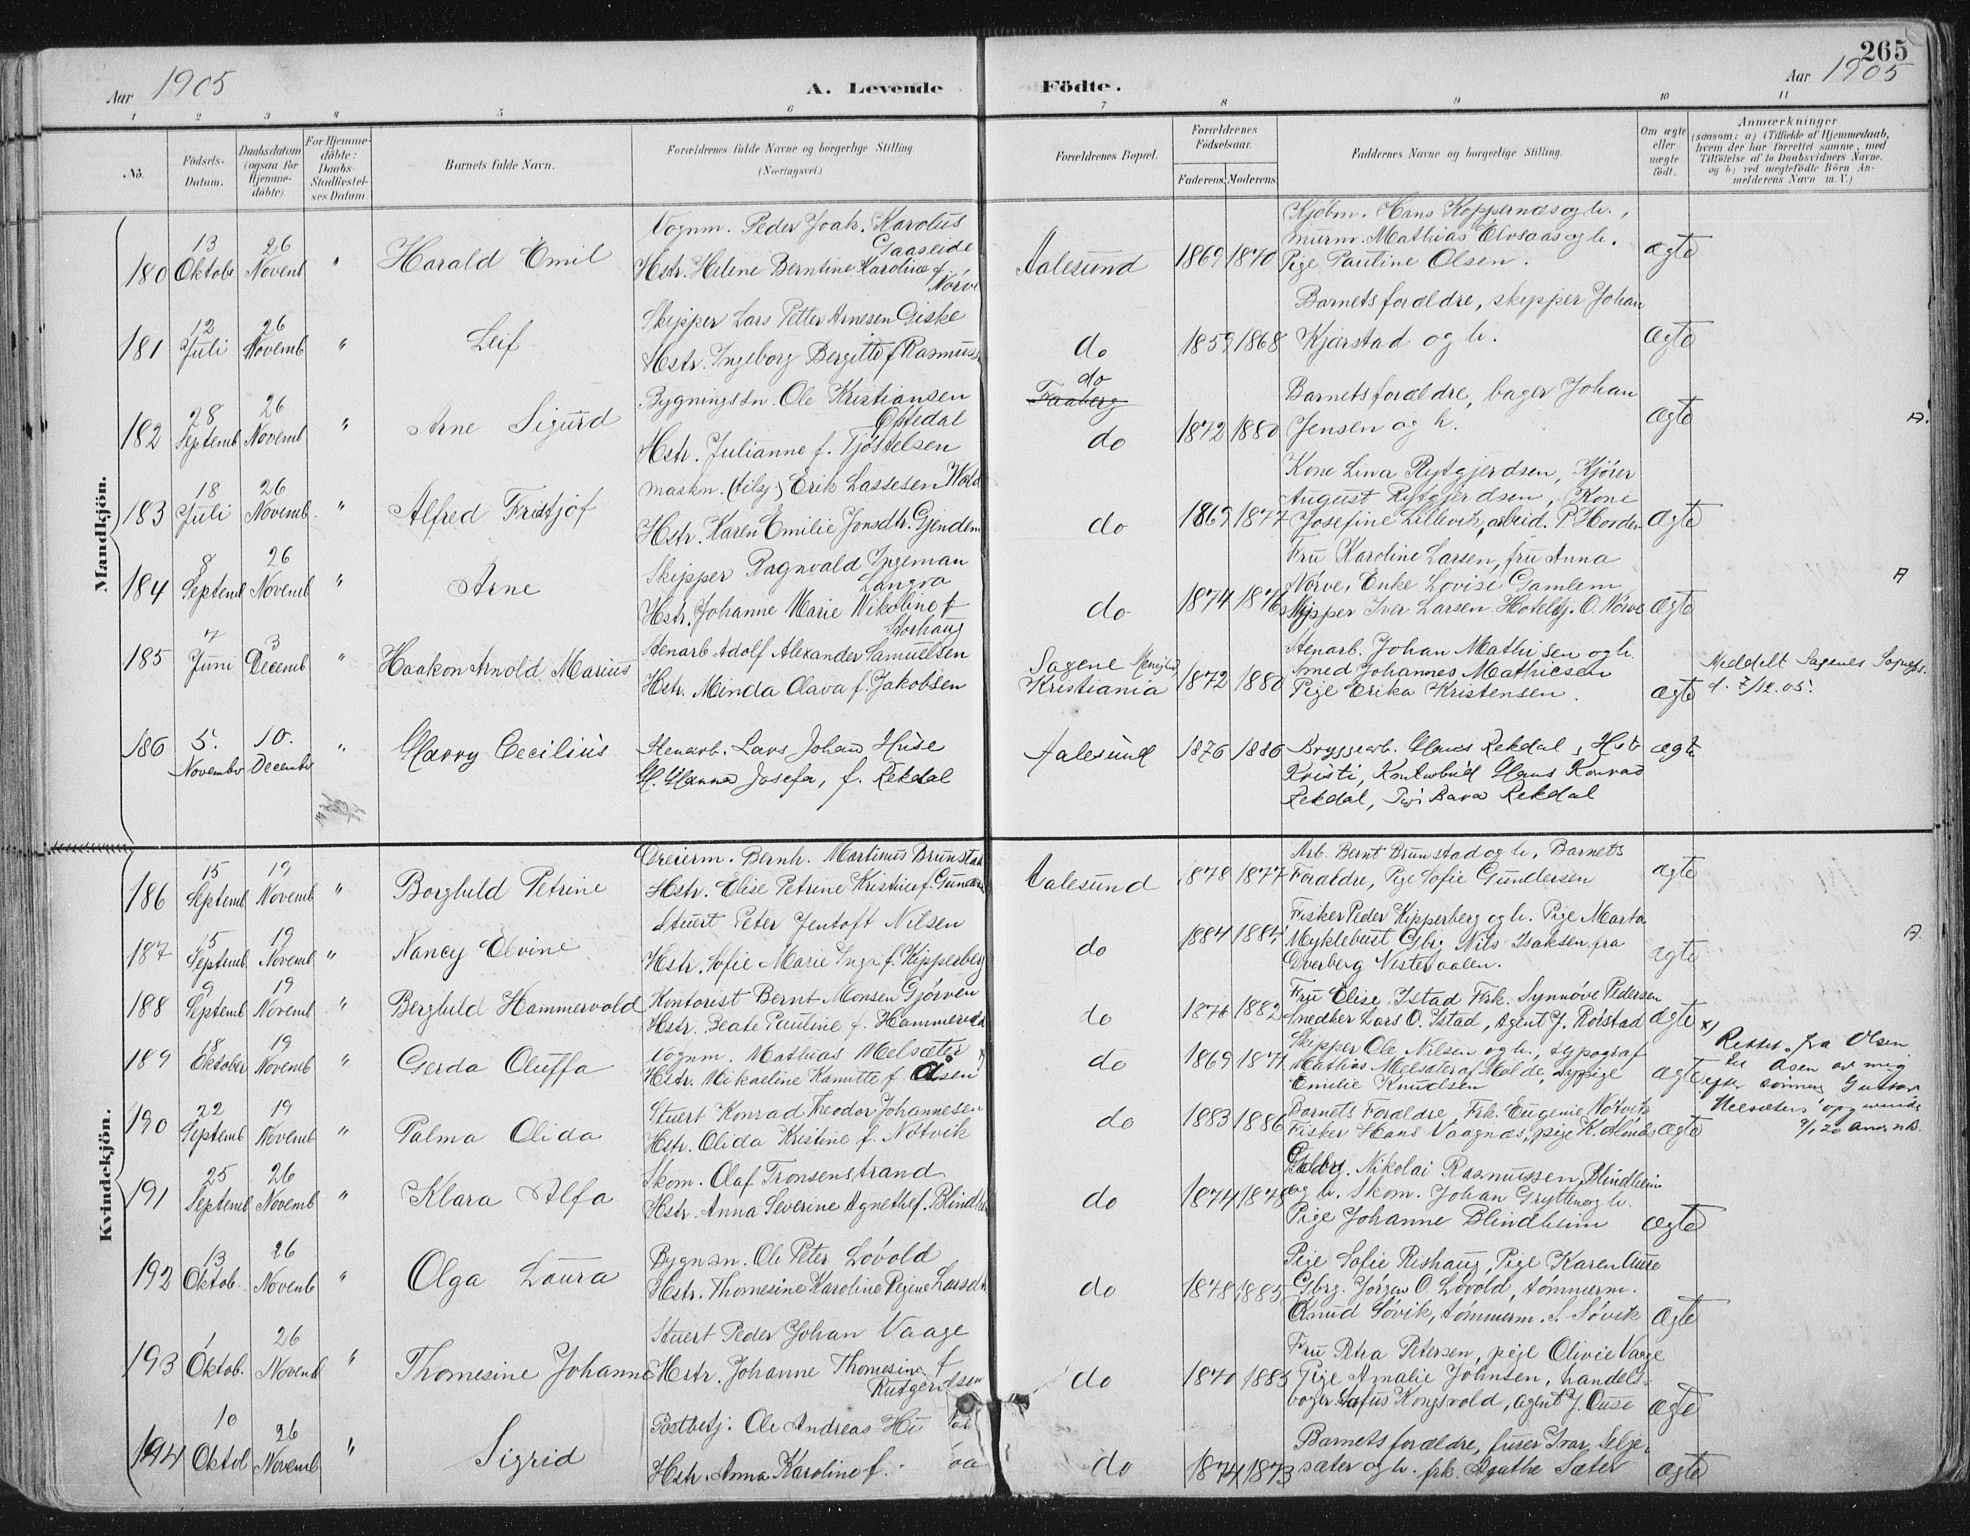 265
Aar 1905
A. Levende Födte.
Aar 1905
1 2 3 4 5 6 7 8 9 10 11
No.
Födsels-Datum.
Daabsdatum (ogsaa for Hjemme-döbte).
For Hjemme-döbte: Daabs-Stadfæstel-ses Datum.
Barnets fulde Navn.
Forældrenes fulde Navne og borgerlige Stilling. (Næringsvei.)
Forældrenes Bopæl.
Forældrenes Födselsaar.
Faderens. Moderens.
Faddernes Navne og borgerlige Stilling.
Om ægte eller uægte födt.
Anmærkninger
(saasom: a) i Tilfælde af Hjemmedaab,
hvem der har forrettet samme, med
Tilföielse af to Daabsvidners Navne.
og b) ved uægtefödte Börn An-
melderens Navn m. V.)
Mandkjön.
180 13 Oktobe 26 Novemb " Harald Emil
Vognm. Peder Joak. Karolus Gaaseide
Hstr. Helene Berntine Karoline f. Nörve
Aalesund 1869 1870
Kjöbm. Hans Koppernæs og h.,
murm. Mathias Elvsaas og h.
Pige Pauline Olsen.
ægte
181 12 Juli 26 Novemb " Leif
Skipper Lars Petter Arnesen Giske
Hstr. Ingeborg Bergitte f. Rasmuss
do 1859 1868
Barnets forældre, skipper Johan
Kjærstad og h.
ægte
182 28 Septemb 26 Novemb " Arne Sigurd
Bygningssn. Ole Kristiansen Opsedal
Hstr. Julianne f. Tjöstelsen
do
Faaberg
do 1872 1880
Barnets forældre, bager Johan
Jensen og h.
ægte A.
183 18 Juli 26 Novemb " Alfred Fridtjof
Maskn. (tilsj) Erik Lassesen Wold
Hstr. Karen Emilie Jonsdtr. Gjendem
do 1869 1877
Kone Lina Rytgjerdsen, Kjörer
August Rytgjerdsen, Kone
Josefine Lillevik, arbeid. P. Horden
ægte
184 8 Septemb 26 Novemb " Arne
Skipper Ragnvald Ingeman Langva
Hstr. Johanne Marie Nikoline f. Storhaug
do 1874 1876
Fru Karoline Larsen, fru Anna
Nörve, Enke Lovise Gamlem
Skipper Iver Larsen Hotelbj. O. Nörve
ægte A
185 7 Juni 3 Decemb " Haakon Arnold Marius
Stenarb. Adolf Alexander Samuelsen
Hstr. Minda Olava f. Jakobsen
Sagene Menighed
Kristiania 1872 1880
Stenarb. Johan Mathisen og h.
Smed Johannes Mathiesen
Pige Erika Kristensen.
ægte
Meddelt Sagenes Sognepr.
d. 7/12.05.
186 5. November 10. December " Harry Cecilius
Stenarb. Lars Johan Huse
H. Hanna Josefa, f. Rekdal
Aalesund 1876 1886
Bryggearb. Hans Rekdal, Hstr
Kristi, Kontorbud Hans Konrad
Rekdal, Bara Rekdal
ægte
Kvindekjön.
186 15 Septemb 19 Novemb " Borghild Petrine
Dreierm. Bernh. Martinus Brunstad
Hstr. Elise Petrine Kristine f. Gunders
Aalesund 1878 1877
Arb. Bernt Brunstad og h. Barnets
Forældre, Pige Sofie Gundersen
ægte
187 15 Septemb 19 Novemb " Nancy Elvine
Stuert Peter Jentoft Nilsen
Hstr. Sofie Marie Inga f. Kipperberg
do 1884 1884
Fisker Peder Kipperberg og h. Pige Marta
Myklebust Gbr. Nils Isaksen fra
Overberg Vesteraalen.
ægte A.
188 9 Septemb 19 Novemb " Berghild Hammervold
Kontorist Bernt Monsen Gjörven
Hstr. Beate Pauline f. Hammervold
do 1876 1882
Fru Elise Istad Frk. Synnöve Pedersen
Snedker Lars O. Istad, Agent J. Roistad
ægte
189 18 Oktober 19 Novemb " Gerda Oluffa
Vognm. Mathias Melsæter
Hstr. Mikaeline Kamitte f. Aasen x)
do 1869 1871
Skipper Ole Nilsen og h., typograf
Mathias Melsæter af Molde, sypige
Emilie Knudsen
ægte
x) Rettet fra Olsen
til Åsen av mig
efter sönnen Gustav
Melsæters opgivende
190 22 Septemb 19 Novemb " Palma Olida
Stuert Konrad Theodor Johannesen
Hstr. Olida Kristine f. Nötvik
do 1883 1886
Barnets Forældre, Frk. Eugenie Nötvik
Fisker Hans Vaagnæs, pige K. Almås
ægte
191 25 Septemb 26 Novemb " Klara Alfa
Skom. Olaf Tronsenstrand
Hstr. Anna Severine Agnethe f. Blindhe
do 1874 1878
Gbr. Nikolai Rasmussen Blindheim
og h. Skom. Johan Grytten og h.
Pige Johanne Blindheim
ægte
192 13 Oktob. 26 Novemb " Olga Laura
Bygnsn. Ole Peter Lovold
Hstr. Thomesine Karoline Regine Lassed
do 1878 1885
Pige Sofie Rishaug, Pige Karen Ouse
Gbrg. Jörgen O. Lövold, tömmerm.
Knud Sövik, tömmerm. S. Sövik
ægte
193 1 Oktob. 26 Novemb " Thomesine Johanne
Stuert Peder Johan Vaage
Hstr. Johanne Thomesine f. Rutgerdsen
do 1870 1883
Fru Petra Petersen, pige Olivie Vaage
Pige Amalie Johnsen, handels-
bager Rafus Kongsvold, agent J. Ouse
ægte
194 10 Oktob 26 Novemb " Sigrid
Postbetj. Ole Andreas
Hstr. Anna Karoline f.
do 1874 1873
Barnets forældre, furer Ivar Selje-
sæter og h. frk. Agathe Sæter
ægte